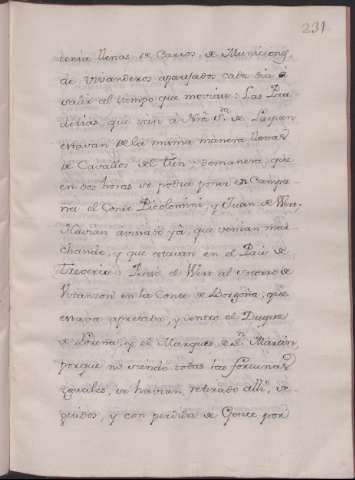 231
tenia llenas de Carros, de Municiones,
de vivanderos aparejados cada dia á
salir al tiempo que moviese: Las
que van a Nrã Sra. de
estavan de la misma manera llenas
de Cavallos del tren: demanera, que
en dos horas se podia poner en Campa-
ña el Conde Picolomini, y Juan de Wert,
Havian avisado ya, que venian mar-
chando, y que estavan en el Pais de
Treveris: Pasó el Wert al socorro de
en la Conte de Borgoña, que
estava apretada, y dentro el Duque
de Lorena, y el Marques de Sn. Martin,
porque no siendo todas las fortunas
iguales, se havian retirado alli, se-
guidos, y con perdida de Gente por